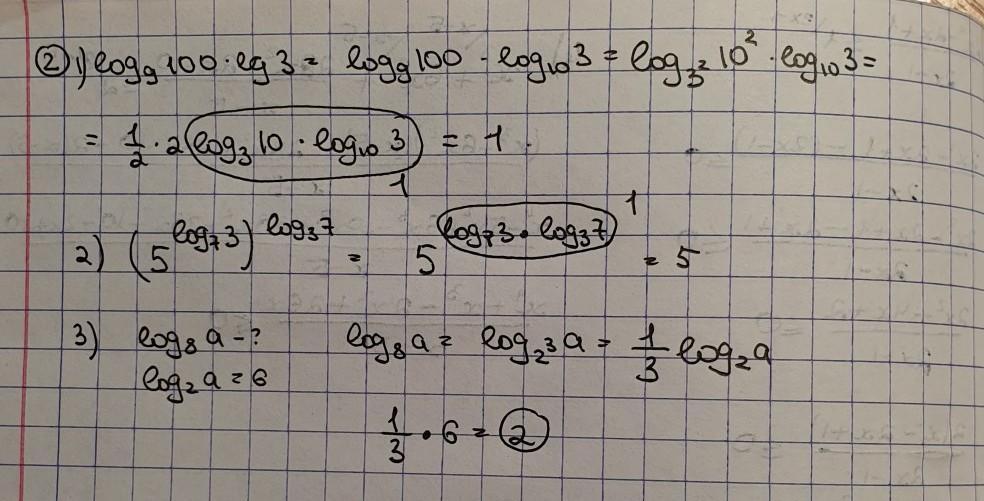 ② 1) log₉100·lg3 = log₉100 · log₁₀3 = log₃²10² · log₁₀3 =
= 1/2 · 2 log₃10 · log₁₀3 = 1.
1
2) (5^log₇3)^log₃7 = 5^log₇3 · log₃7 = 5
1
3) log₈a - ? log₈a = log₂³a = 1/3 log₂a
log₂a = 6
1/3 · 6 = 2